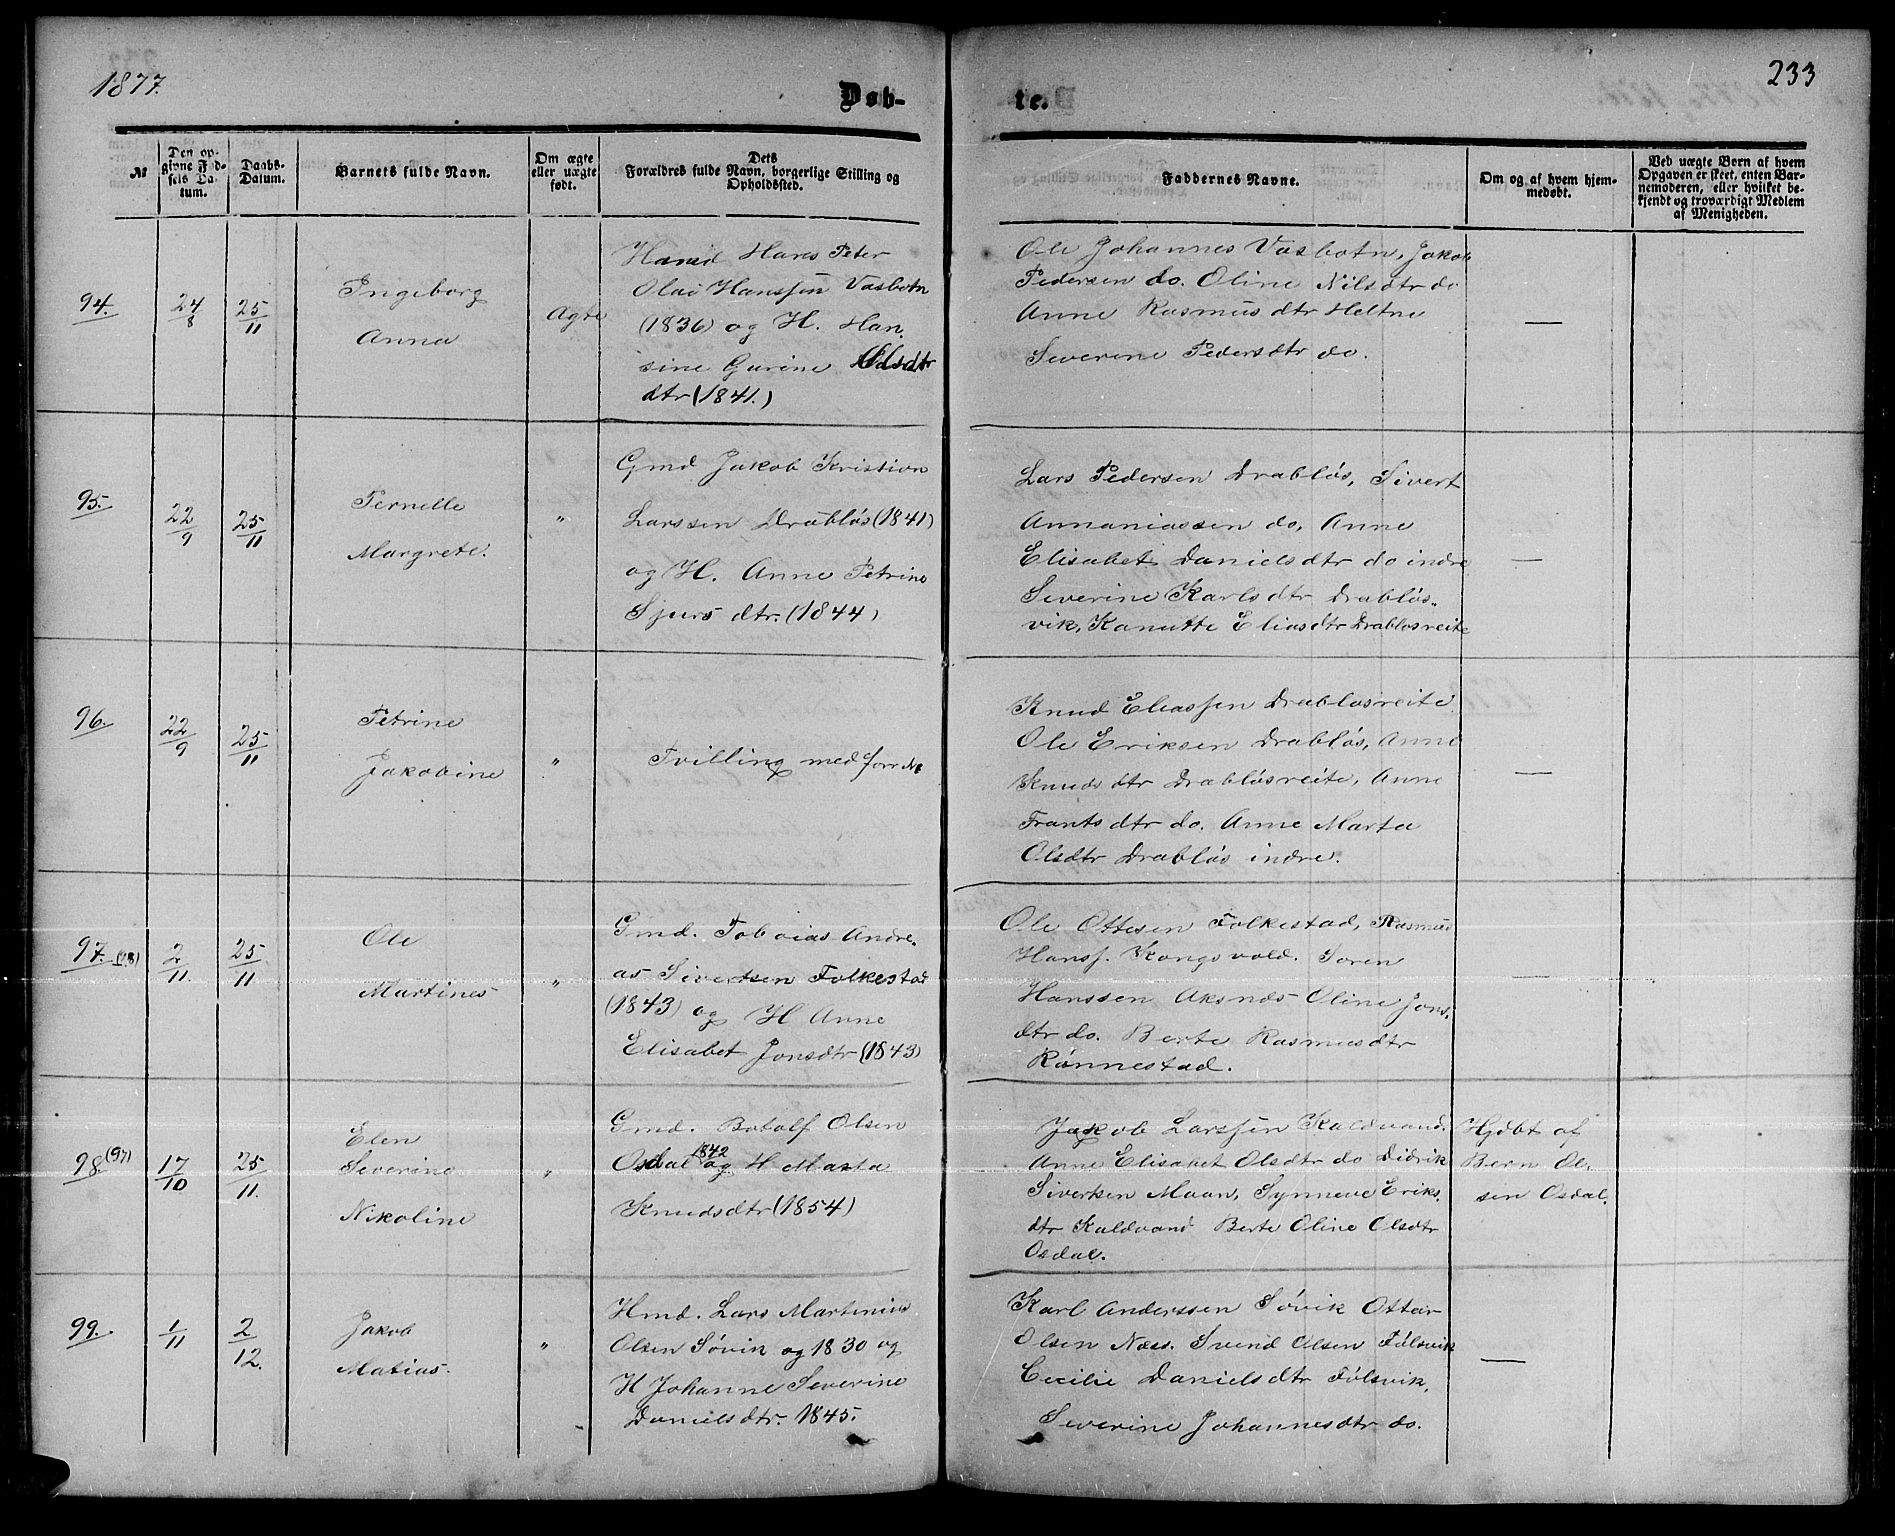 1877.
Døb-
te.
233
№
Den op-
givne Fød-
sels Da-
tum.
Daabs-
Datum.
Barnets fulde Navn.
Om ægte
eller uægte
født.
Dets
Forældres fulde Navn, borgerlige Stilling og
Opholdssted.
Faddernes Navne.
Om og af hvem hjem-
medøbt.
Ved uægte Børn af hvem
Opgaven er skeet, enten Bar-
nemoderen, eller hvilket be-
kjendt og troværdigt Medlem
af Menigheden.
94.
24/8
25/11
Ingeborg
Anna
Ægte
Hans Peter
Olai Hanssen Vasbotn
(1836) og H. Han
sine Gurine Olsdtr
dtr (1841.)
Ole Johannes Vasbotn, Jakob
Pedersen do. Oline Nilsdtr do
Anne Rasmusdtr Heltne
Severine Pedersdtr do.
—
95.
22/9
25/11
Pernelle
Margrete.
"
Gmd Jakob Kristian
Larssen Drabløs (1841)
og H. Anne Petrine
Sjurs dtr. (1844)
Lars Pedersen Drabløs, Sivert
Annaniassen do, Anne
Elisabet Daniels dtr do indre
Severine Karls dtr Drabløs-
vik, Kanutte Eliasdtr Drabløsreite
—
96.
22/9
25/11
Petrine
Jakobine
"
Tvilling med forr №
Knud Eliassen Drabløsreite
Ole Eriksen Drabløs, Anne
Knuds dtr Drabløsreite, Anne
Frants dtr do. Anne Marta
Olsdtr Drabløs indre.
—
97. (98)
2/11.
25/11
Ole
Martines
"
Gmd. Tobias Andre-
as Sivertsen Folkestad
(1843) og H Anne
Elisabet Jonsdtr (1843)
Ole Ottesen Folkestad, Rasmus
Hanss. Kongsvold. Søren
Hanssen Aksnes Oline Jons-
dtr do. Berte Rasmusdtr
Rønnestad.
—
98. (97)
17/10
25/11.
Elen
Severine
Nikoline
"
Gmd. Botolf Olsen
Osdal 1842 og H Marta
Knudsdtr (1854)
Jakob Larssen Kaldvand.
Anne Elisabet Olsdtr do Didrik
Sivertsen Moan, Synneve Eriks
dtr Kaldvand Berte Oline Olsdtr
Osdal.
Hjdbt af
Bern Ol-
sen Osdal.
99.
1/11
2/12.
Jakob
Matias.
"
Hmd. Lars Martinius
Olsen Søvik og 1830 og
H Johanne Severine
Daniels dtr. 1845.
Karl Anderssen Søvik Ottar
Olsen Næss. Svend Olsen Følsvik
Cecilie Daniels dtr Følsvik,
Severine Johannesdtr do.
—